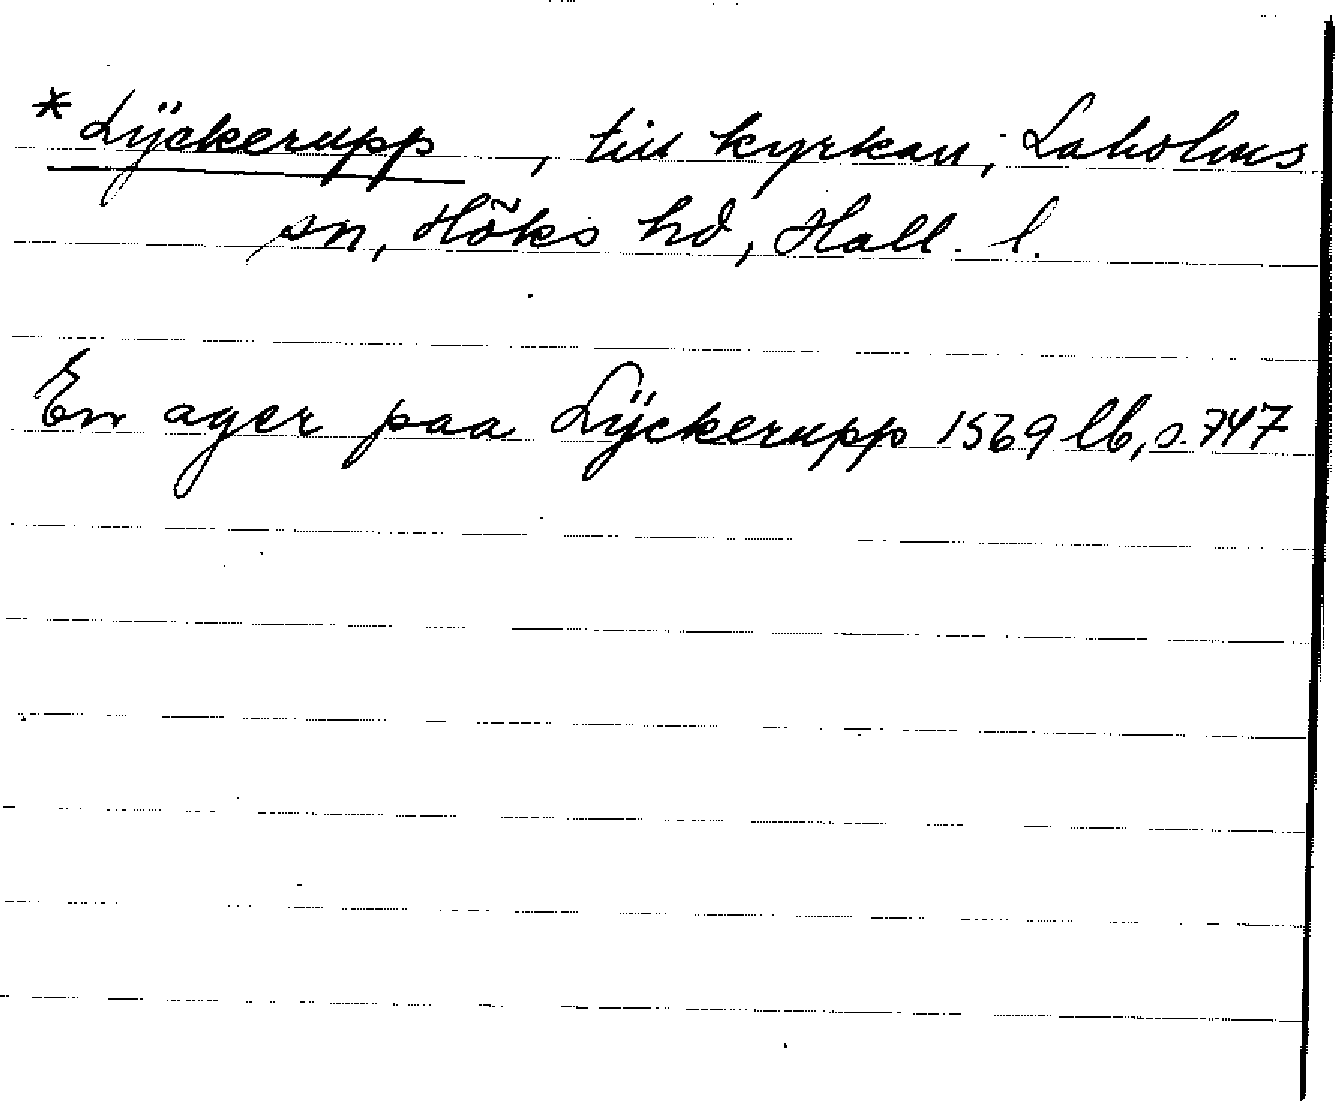 * Lÿckerupp, till kyrkan, Laholms
sn, Höks hd, Hall. l.
En ager paa Lÿckerupp 1569 lb, s. 747